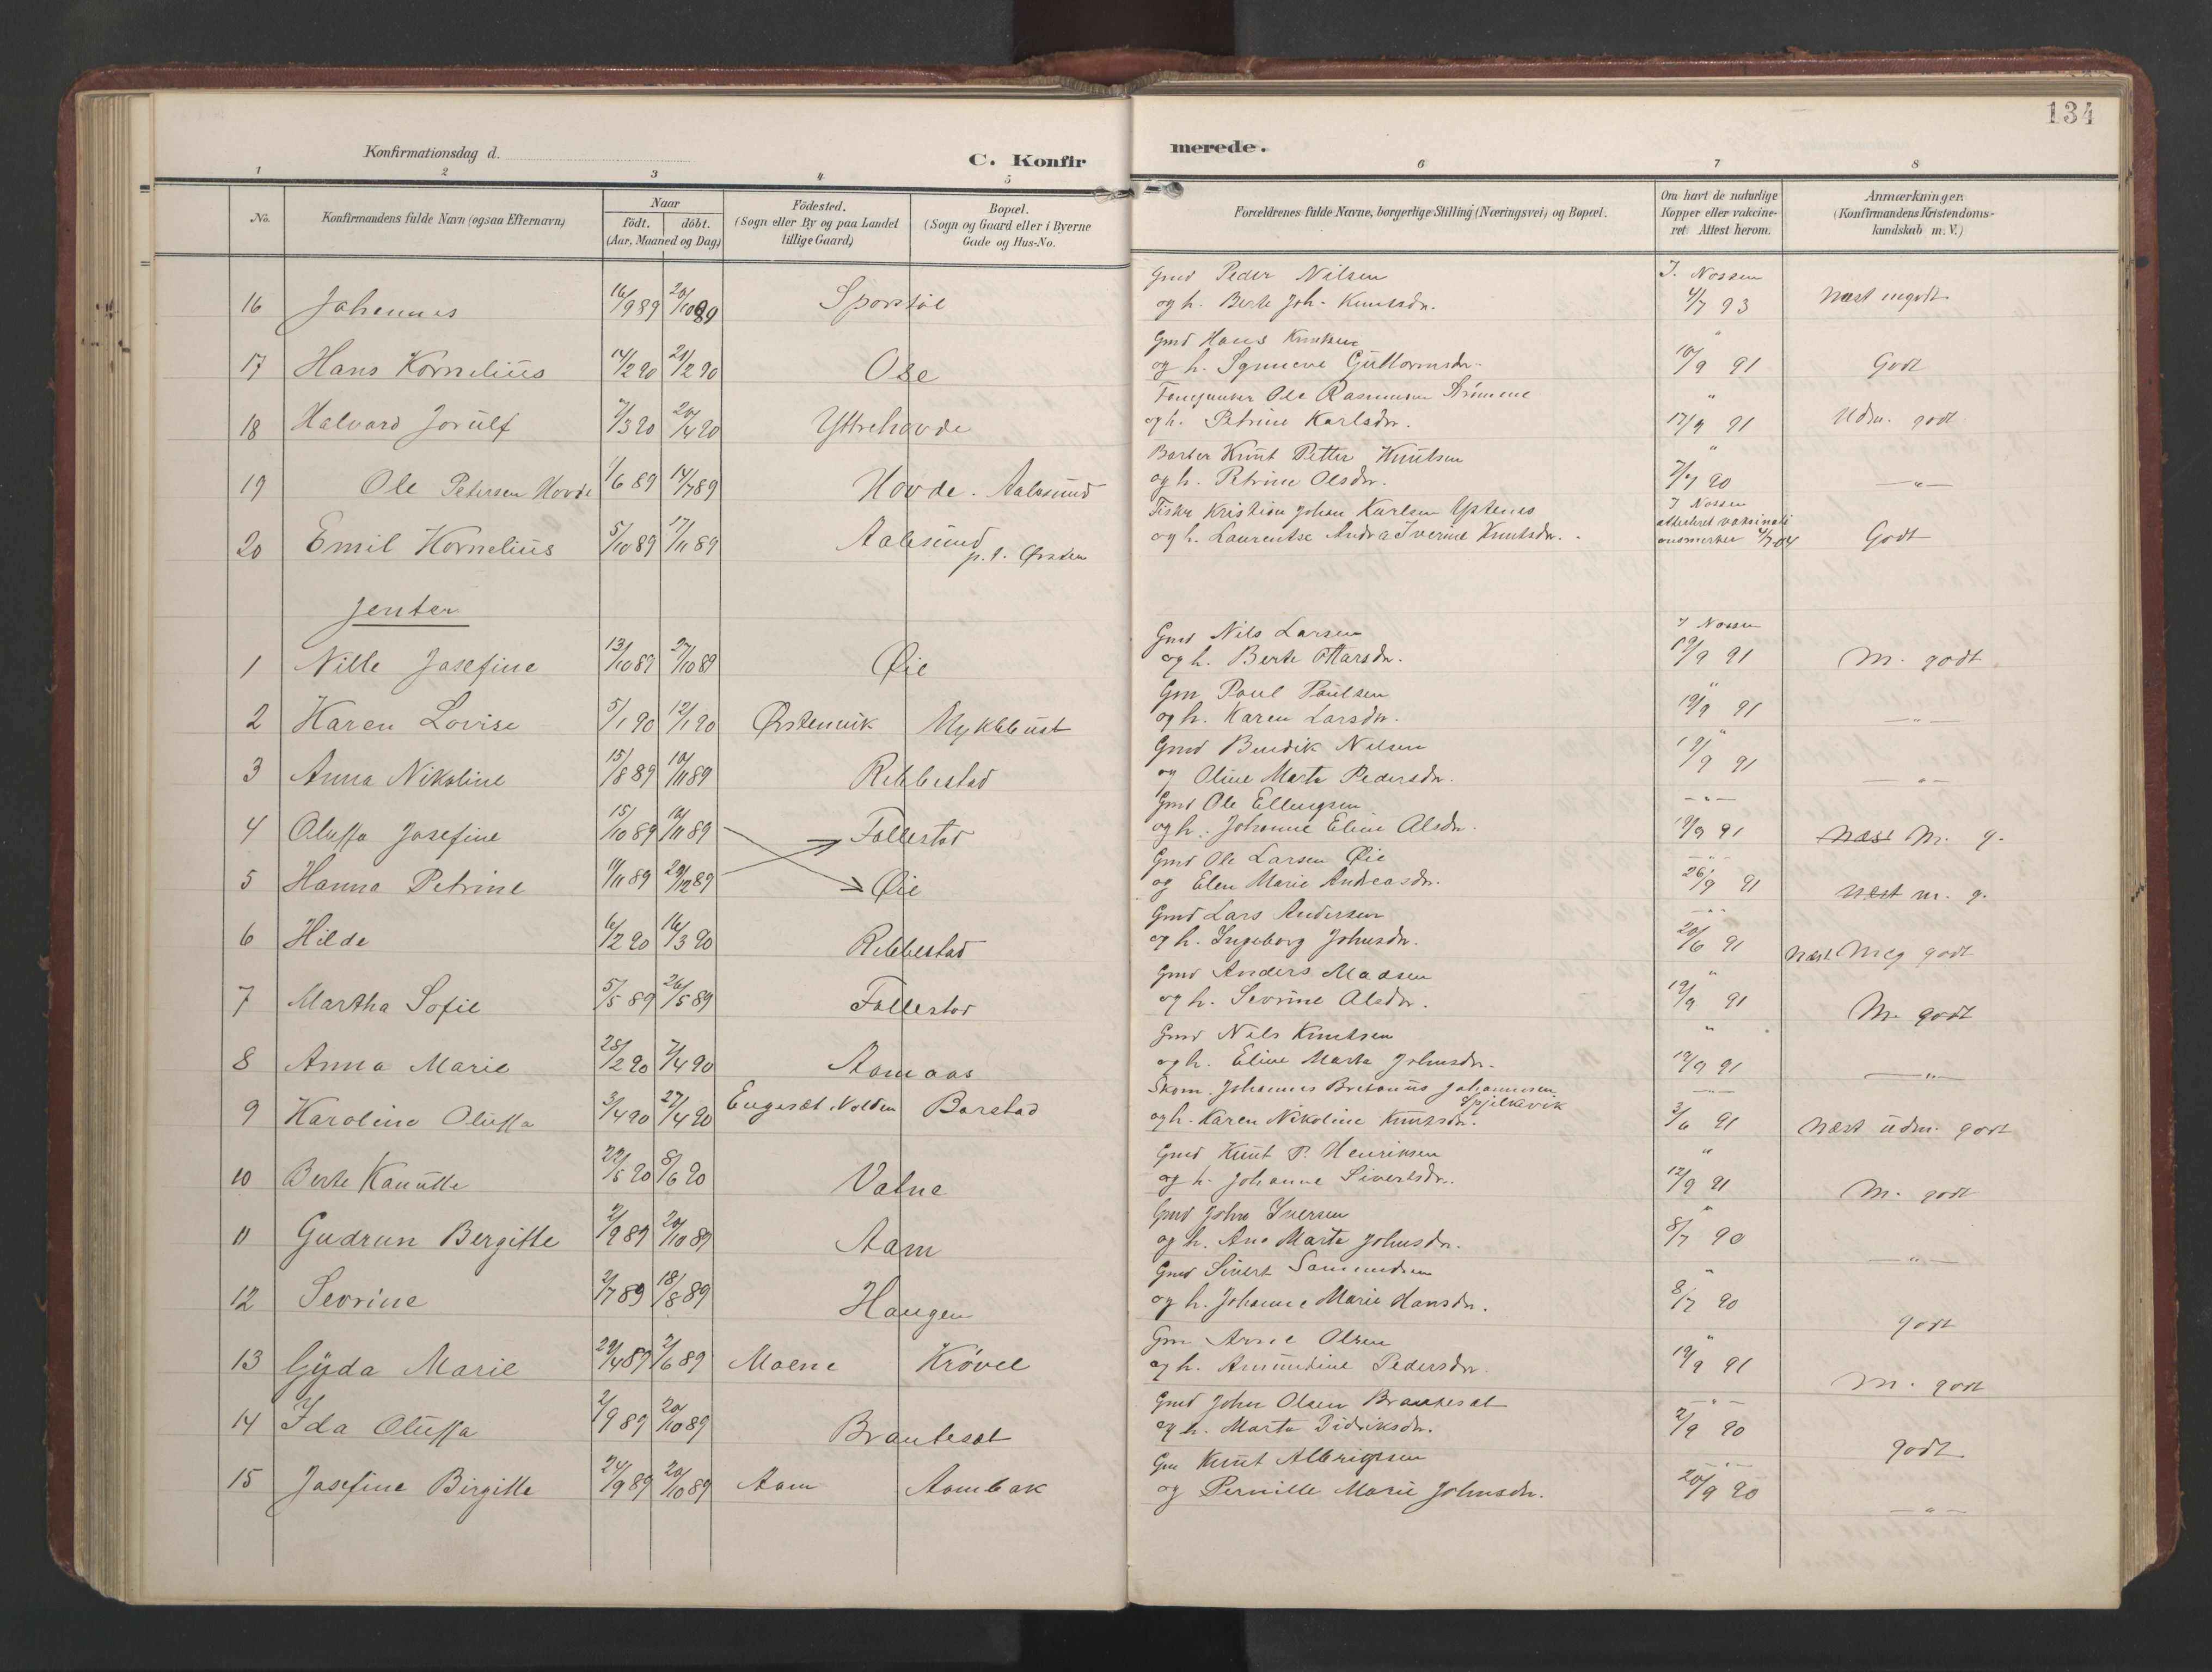 134
Konfirmationsdag d.
C. Konfirmerede.
1 2 3 4 5 6 7 8
No.
Konfirmandens fulde Navn (ogsaa Efternavn)
Naar
født. døbt.
(Aar, Maaned og Dag)
Fødested.
(Sogn eller By og paa Landet
tillige Gaard)
Bopæl.
(Sogn og Gaard eller i Byerne
Gade og Hus-No.
Forældrenes fulde Navne, borgerlige Stilling (Næringsvei) og Bopæl.
Om havt de naturlige
Kopper eller vakcine-
ret. Attest herom.
Anmærkninger.
(Konfirmandens Kristendoms-
kundskab m. V.)
Gmd Peder Nilsen J. Nossen
16 Johannes 16/9 89 20/10 89 og h. Berte Joh. Knutsdr. 4/7 93
Gmd Hans Knutsen "
17 Hans Kornelius 14/2 90 21/2 90 Ose og h. 10/9 91 Godt
Ole Rasmussen "
18 Halvard Jorulf 7/3 90 20/4 90 Yttrehovde og h. Petrine Karlsdr. 17/9 91 Udm. godt
Knut Petter Knutsen "
19 Ole Petersen Hovde 1/6 89 14/7 89 Hovde. Aalesund og h. Petrine Olsdr. 7/7 90 —"—
Fisker Kristian Johan Karlsen J Nossen
20 Emil Kornelius 5/10 89 17/11 89 Aalesund p.t. Ørsten og h. Laurentse Andrea Iverine Knutsdr. Godt
Jenter
Gmd Nils Larsen J Nossen
1 Nille Josefine 13/10 89 27/10 89 Øie og h. Berte Ottarsdr. 19/9 91 M. godt
Gm Poul Paulsen "
2 Karen Lovise 5/1 90 12/1 90 Ørstenvik Myklebust og h. Karen Larsdr. 19/9 91 —"—
Gmd Bendik Nilsen "
3 Anna Nikoline 15/8 89 10/11 89 Rebbestad og Oline Marta Pedersdr. 19/9 91 —"—
Gmd Ole Ellingsen —"—
4 Oluffa Josefine 15/10 89 10/11 89 Follestad og h. Johanne Eline Olsdr. 19/9 91 Næst M. g.
Gmd Ole Larsen Øie "
5 Hanna Petrine 11/11 89 29/12 89 Øie og Elen Marie Andreasdr. 26/9 91 Næst m. g.
Gmd Lars Andersen —"—
6 Hilde 6/2 90 16/3 90 Rebbestad og h. Ingeborg Johnsdr. 20/6 91 Næst Meg godt
Gmd Anders Madsen "
7 Martha Sofie 5/5 89 26/5 89 Follestad og h. Sevrine Olsdr. 19/9 91 M. godt
Gmd Nils Knutsen "
8 Anna Marie 28/2 90 7/4 90 Aamaas og h. Eline Marta Johnsdr. 19/9 91 —"—
Skom. Johannes Johannesen Spjelkavik
9 Karoline Oluffa 3/4 90 27/4 90 Engeset. Volden Barstad og h. Karen Nikoline Knutsdr. 3/6 91 Næst udm. godt
Gmd Knut P. Henriksen "
10 Berte Kanutte 22/5 90 8/6 90 Vatne og h. Johanne Sivertsdr. 12/9 91 M. godt
Gmd John Iversen "
11 Gudrun Bergitte 2/9 89 20/10 89 Aam og h. Ane Marta Johnsdr. 8/7 90 —"—
Gmd Sivert "
12 Sevrine 2/7 89 18/8 89 Haugen og h. Johanne Marie Hansdr. 8/7 90 godt
Gm Arne Olsen "
13 Gyda Marie 29/4 89 2/6 89 Moene Krøvel og h. Amundine Pedersdr. 19/9 91 M. godt
Gmd John Olsen Brauteset —"—
14 Ida Oluffa 2/9 89 20/10 89 Brauteset og h. Marta Didriksdr. 2/9 90 godt
Gm Knut Albrigtsen —"—
15 Josefine Birgitte 24/9 89 20/10 89 Aam Aambak og Pernille Marie Johnsdr. 20/9 90 —"—